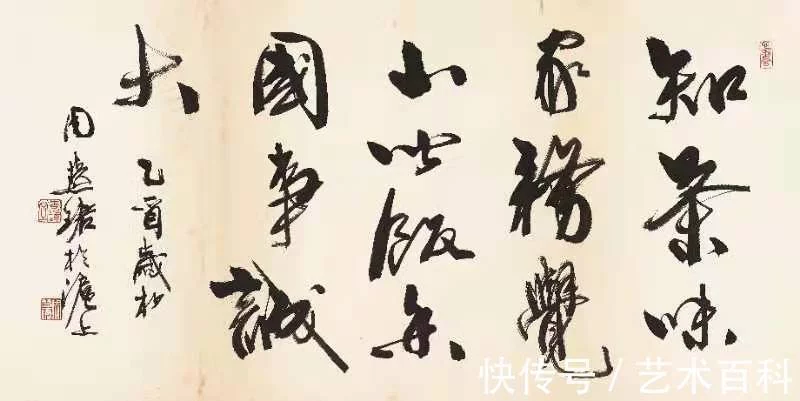 知菜味
家務覺
小飯香
國事誠
大
乙酉歲
周慧珺於滬上
快传号/艺术百科